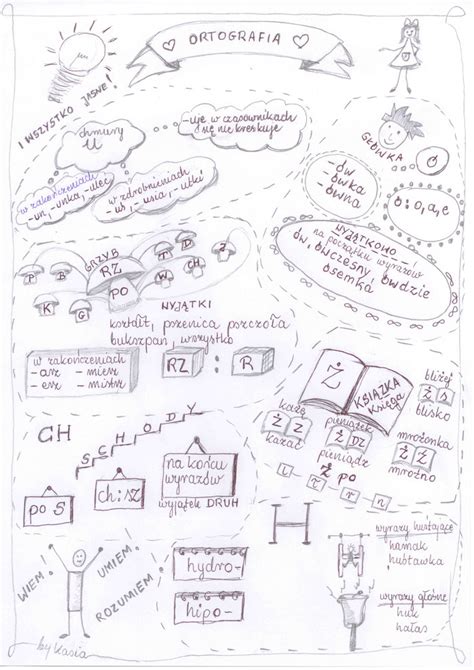 ORTOGRAFIA
I WSZYSTKO JASNE!
chmury
U
-uje w czasownikach
się nie kreskuje
w zakończeniach
-un, -unka, -uleć
w zdrobnieniach
-uś, -usia, -utki
GŁÓWKA
Ó
-ów
-ówka
-ówna
ó : o, a, e
WYJĄTKOWO!
na początku wyrazów
ów, ówczesny, ówdzie
ósemka
GRZYB
RZ
PO
P
B
T
D
K
G
W
J
CH
WYJĄTKI
kształt, pszenica pszczoła
bukszpan, wszystko
w zakończeniach
- arz - mierz
- erz - mistrz
RZ : R
Ż
KSIĄŻKA
księga
bliżej
Ż S
blisko
każę
Ż Z
kazać
pieniążek
Ż DZ
pieniądz
mrożonka
Ż Ź
mroźno
Ż PO
L Ł R N
CH
SCHODY
po S
ch : sz
na końcu
wyrazów
wyjątek DRUH
H
wyrazy huśtające
hamak
huśtawka
wyrazy głośne
huk
hałas
WIEM!
UMIEM.
ROZUMIEM!
hydro-
hipo-
by Kasia